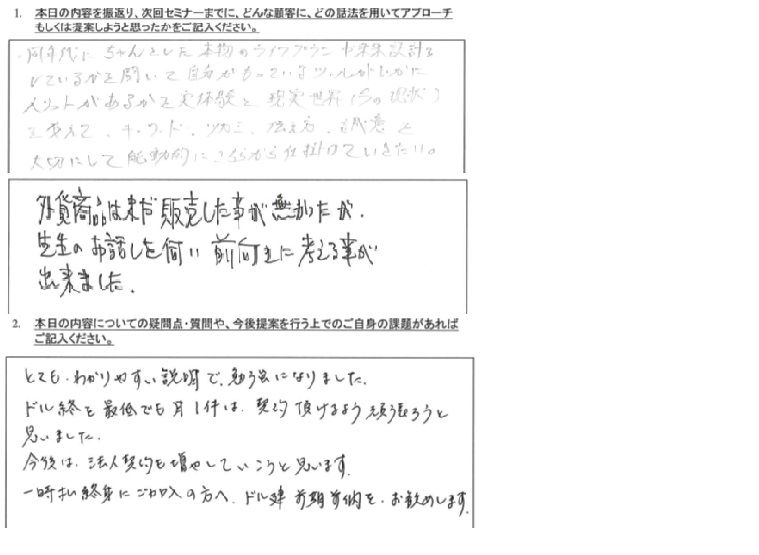 1. 本日の内容を振返り、次回セミナーまでに、どんな顧客に、どの話法を用いてアプローチ
もしくは提案しようと思ったかをご記入ください。
・同年代に ちゃんとした本物のライフプラン 将来設計を
しているかを聞いて 自分がもっているツールがいかに
メリットがあるかを実体験と 現実世界(の現状)
を交えて、キーワード、ツカミ、伝え方、誠意を
大切にして能動的にこちらから仕掛けていきたい。
外貨商品は未だ販売した事が無かったが、
先生のお話しを伺い 前向きに考える事が
出来ました。
2. 本日の内容についての疑問点・質問や、今後提案を行う上でのご自身の課題があれば
ご記入ください。
とても、わかりやすい説明で、勉強になりました。
ドル終を最低でも月1件は、契約頂けるよう頑張ろうと
思いました。
今後は、法人契約も増やしていこうと思います。
一時払終身にご加入の方へ、ドル建 前期前納を、お勧めします。